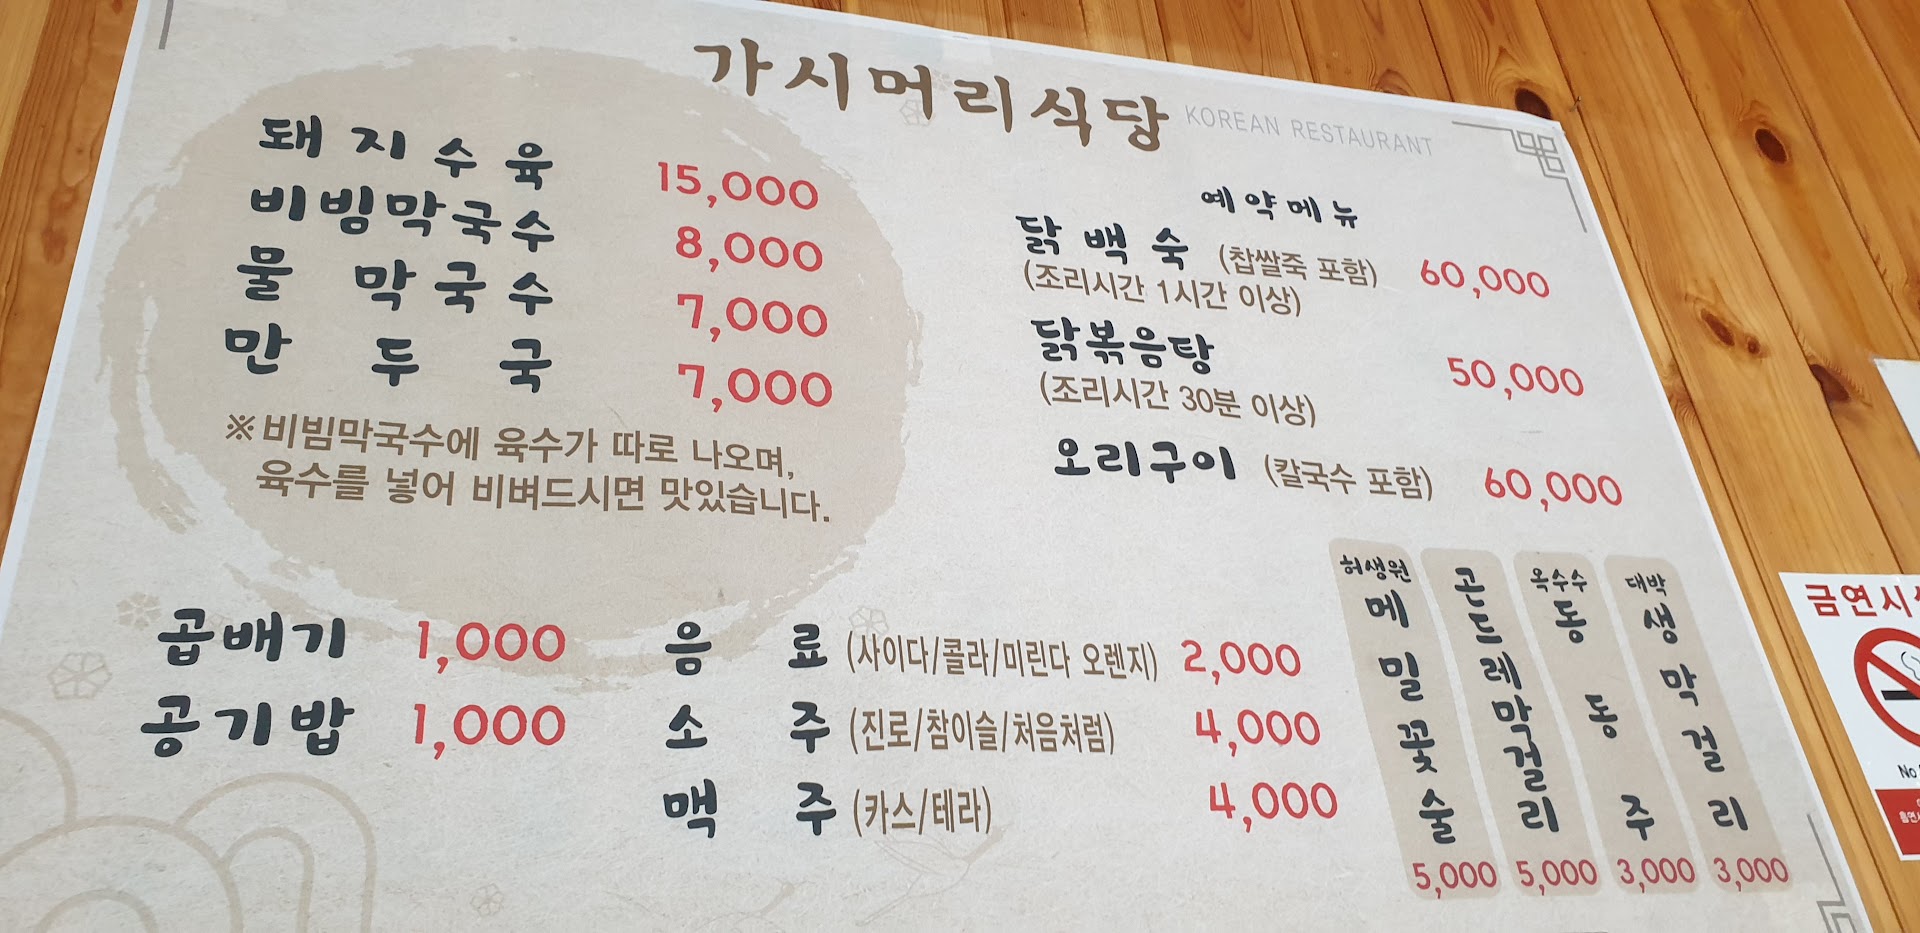 가시머리식당 KOREAN RESTAURANT
돼지수육 15,000
비빔막국수 8,000
물막국수 7,000
만두국 7,000
※비빔막국수에 육수가 따로 나오며,
육수를 넣어 비벼드시면 맛있습니다.
예약메뉴
닭백숙 (찹쌀죽 포함) 60,000
(조리시간 1시간 이상)
닭볶음탕 50,000
(조리시간 30분 이상)
오리구이 (칼국수 포함) 60,000
곱배기 1,000
공기밥 1,000
음료 (사이다/콜라/미린다 오렌지) 2,000
소주 (진로/참이슬/처음처럼) 4,000
맥주 (카스/테라) 4,000
허생원 메밀꽃술 5,000
곤드레막걸리 5,000
옥수수 동동주 3,000
대박 생막걸리 3,000
금연시
No